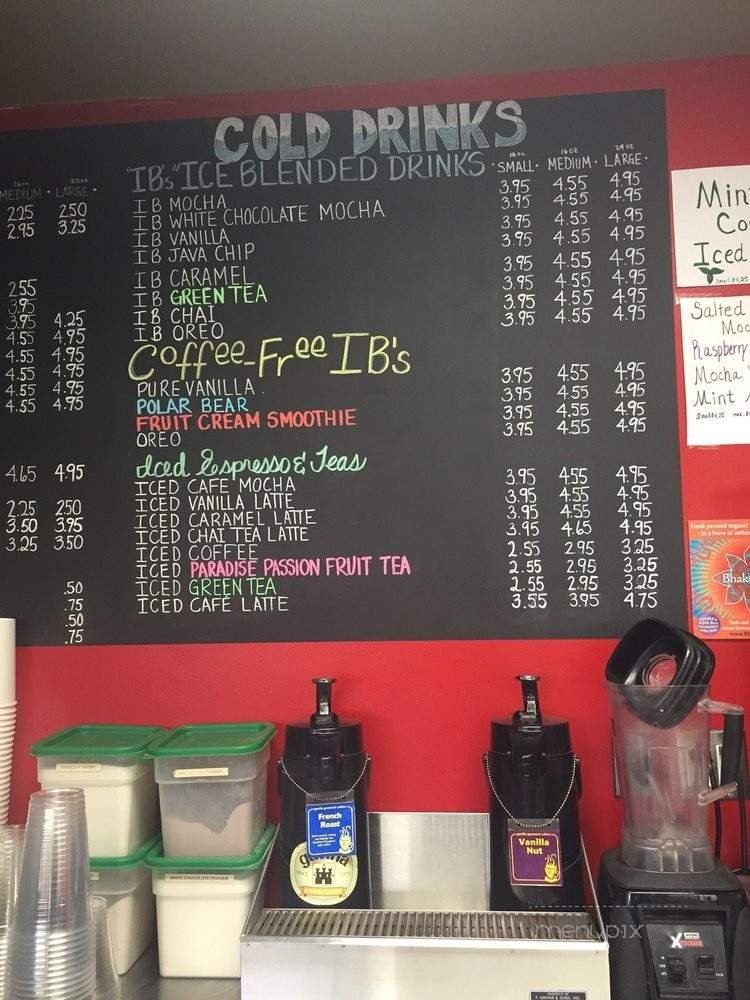 COLD DRINKS
"IB's" ICE BLENDED DRINKS
SMALL · MEDIUM · LARGE ·
16 oz 24 oz
IB MOCHA 3.95 4.55 4.95
IB WHITE CHOCOLATE MOCHA 3.95 4.55 4.95
IB VANILLA 3.95 4.55 4.95
IB JAVA CHIP 3.95 4.55 4.95
IB CARAMEL 3.95 4.55 4.95
IB GREEN TEA 3.95 4.55 4.95
IB CHAI 3.95 4.55 4.95
IB OREO 3.95 4.55 4.95
Coffee-Free IB's
PURE VANILLA 3.95 4.55 4.95
POLAR BEAR 3.95 4.55 4.95
FRUIT CREAM SMOOTHIE 3.95 4.55 4.95
OREO 3.95 4.55 4.95
Iced Espresso & Teas
ICED CAFE MOCHA 3.95 4.55 4.95
ICED VANILLA LATTE 3.95 4.55 4.95
ICED CARAMEL LATTE 3.95 4.55 4.95
ICED CHAI TEA LATTE 3.95 4.65 4.95
ICED COFFEE 2.55 2.95 3.25
ICED PARADISE PASSION FRUIT TEA 2.55 2.95 3.25
ICED GREEN TEA 2.55 2.95 3.25
ICED CAFÉ LATTE 3.55 3.95 4.75
MEDIUM · LARGE ·
2.25 2.50
2.95 3.25
2.55
3.95
3.95 4.25
4.55 4.95
4.55 4.95
4.55 4.95
4.55 4.95
4.65 4.95
2.25 2.50
3.50 3.95
3.25 3.50
.50
.75
.50
.75
Min
Co
Iced
Salted
Moc
Raspberry
Mocha
Mint
Bhak
French
Roast
Vanilla
Nut
WHITE CHOCOLATE POWDER
menupix